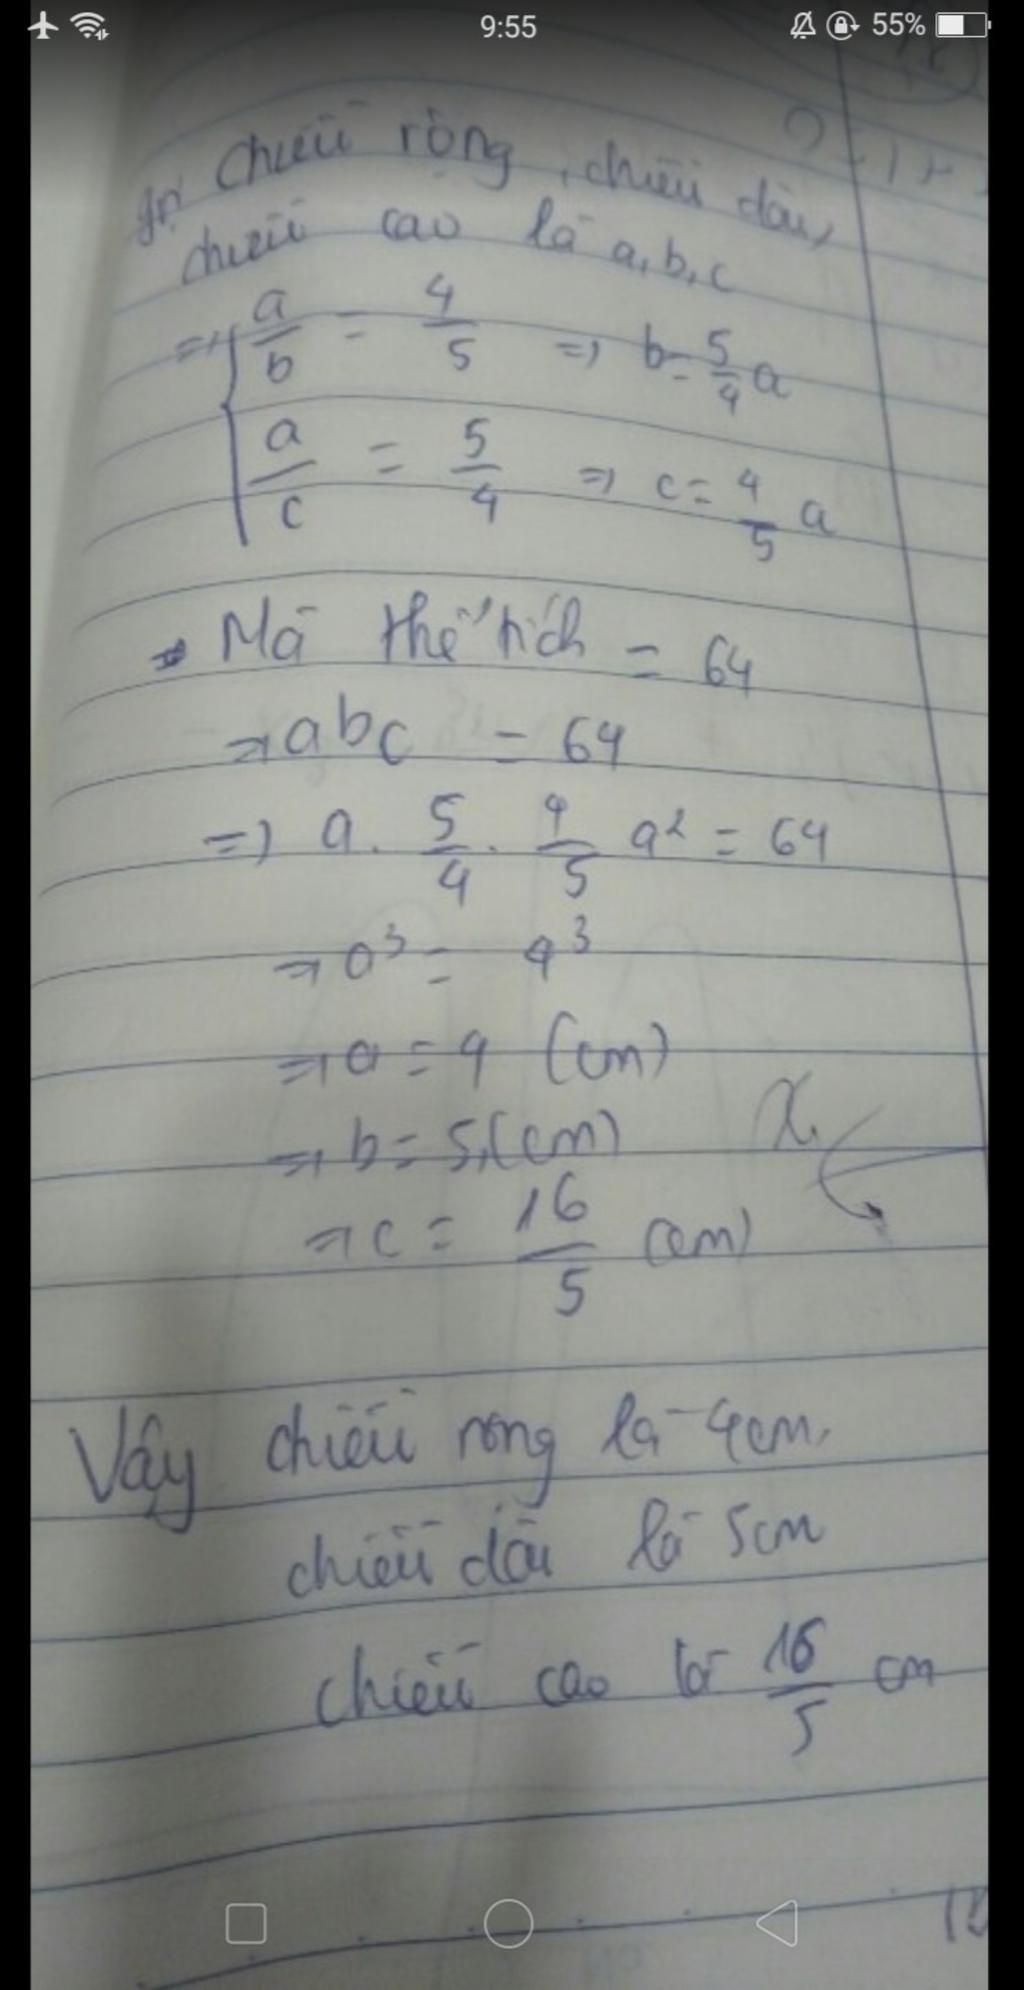 9:55
55%
Gọi chiều rộng, chiều dài,
chiều cao là a, b, c
=> { a/b = 4/5 => b = 5/4 a
a/c = 5/4 => c = 4/5 a
Mà thể tích = 64
=> abc = 64
=> a. 5/4 . 4/5 a² = 64
=> a³ = 4³
=> a = 4 (cm)
=> b = 5 (cm)
=> c = 16/5 (cm)
Vậy chiều rộng là 4cm,
chiều dài là 5cm
chiều cao là 16/5 cm